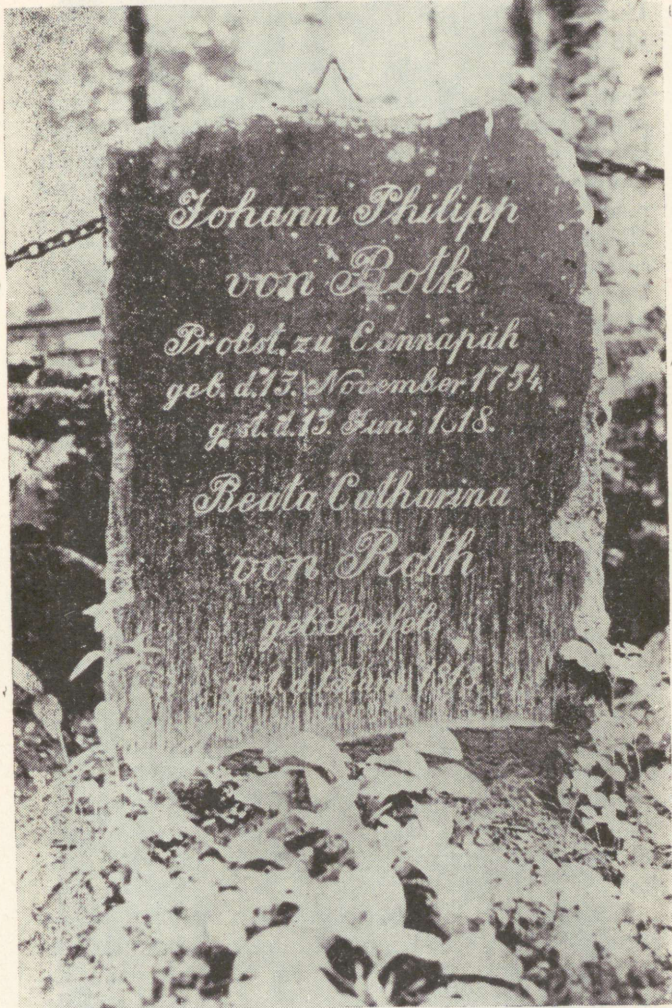 Johann Philipp
von Roth
Probst. zu Cannapäh
geb. d. 13. November. 1754.
gest. d. 13. Juni 1818.
Beata Catharina
von Roth
geb. Seefels
gest. d. 1. 1818